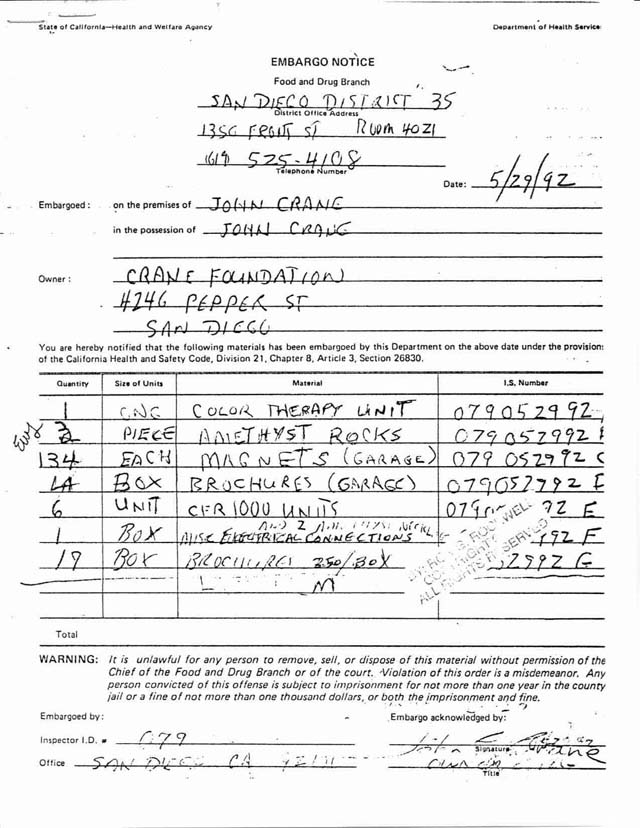 State of California—Health and Welfare Agency Department of Health Service
EMBARGO NOTICE
Food and Drug Branch
SAN DIEGO DISTRICT 35
District Office Address
1350 FRONT ST ROOM 4021
(619) 525-4108
Telephone Number
Date: 5/29/92
Embargoed: on the premises of JOHN CRANE
in the possession of JOHN CRANE
Owner: CRANE FOUNDATION
4246 PEPPER ST
SAN DIEGO
You are hereby notified that the following materials has been embargoed by this Department on the above date under the provision
of the California Health and Safety Code, Division 21, Chapter 8, Article 3, Section 26830.
Quantity Size of Units Material I.S. Number
1 COLOR THERAPY UNIT 079052992
PIECE AMETHYST ROCKS 079052992
134 EACH MAGNETS (GARAGE) 079 052992 C
BOX BROCHURES (GARAGE) 079052992
6 UNIT CFR 1000 UNITS 0790 92 E
AND 2
1 BOX MISC ELECTRICAL CONNECTIONS 992 F
19 BOX BROCHURES 250/BOX 52992 G
ROCKWELL
COPYRIGHT
ALL RIGHTS RESERVED
Total
WARNING: It is unlawful for any person to remove, sell, or dispose of this material without permission of the
Chief of the Food and Drug Branch or of the court. Violation of this order is a misdemeanor. Any
person convicted of this offense is subject to imprisonment for not more than one year in the county
jail or a fine of not more than one thousand dollars, or both the imprisonment and fine.
Embargoed by: Embargo acknowledged by:
Inspector I.D. # 079 John Crane
Signature
Office SAN DIEGO CA
Title